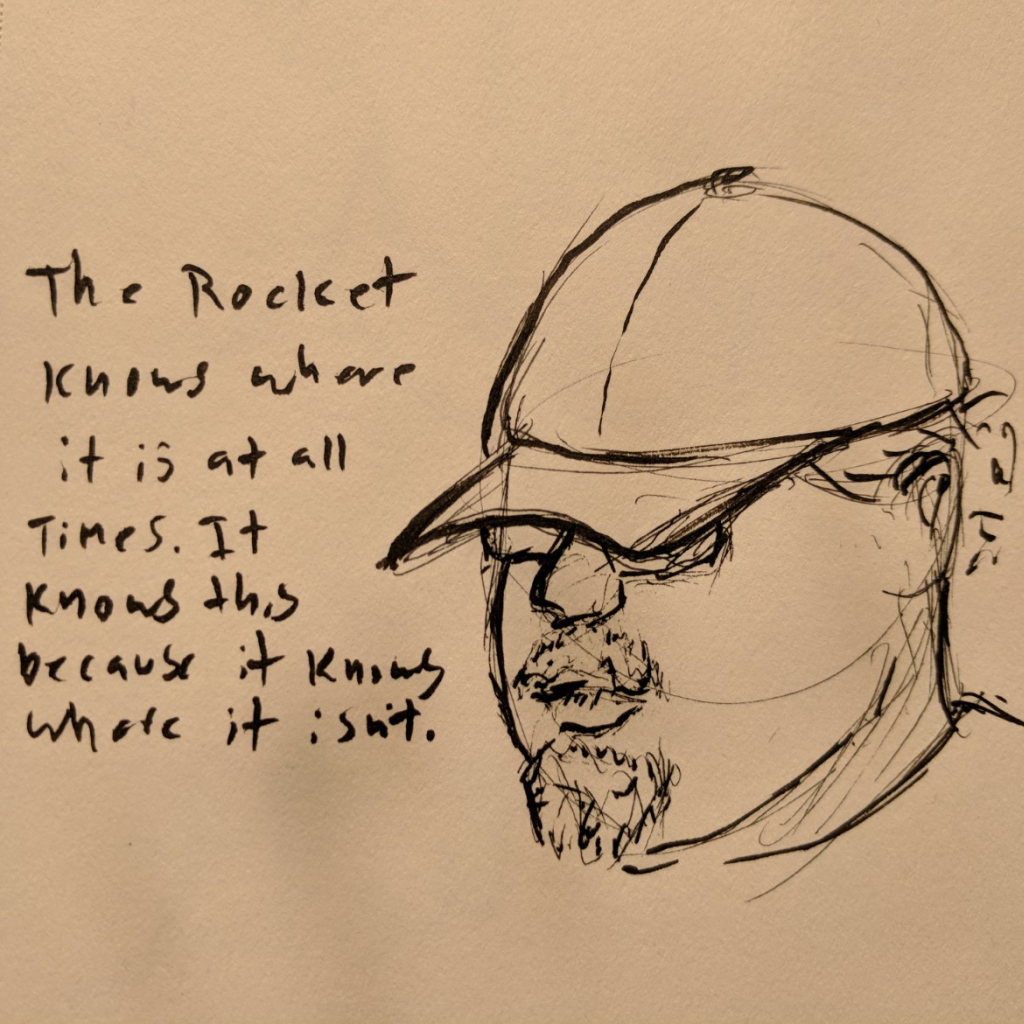 The Rocket
knows where
it is at all
Times. It
knows this
because it knows
where it isn't.